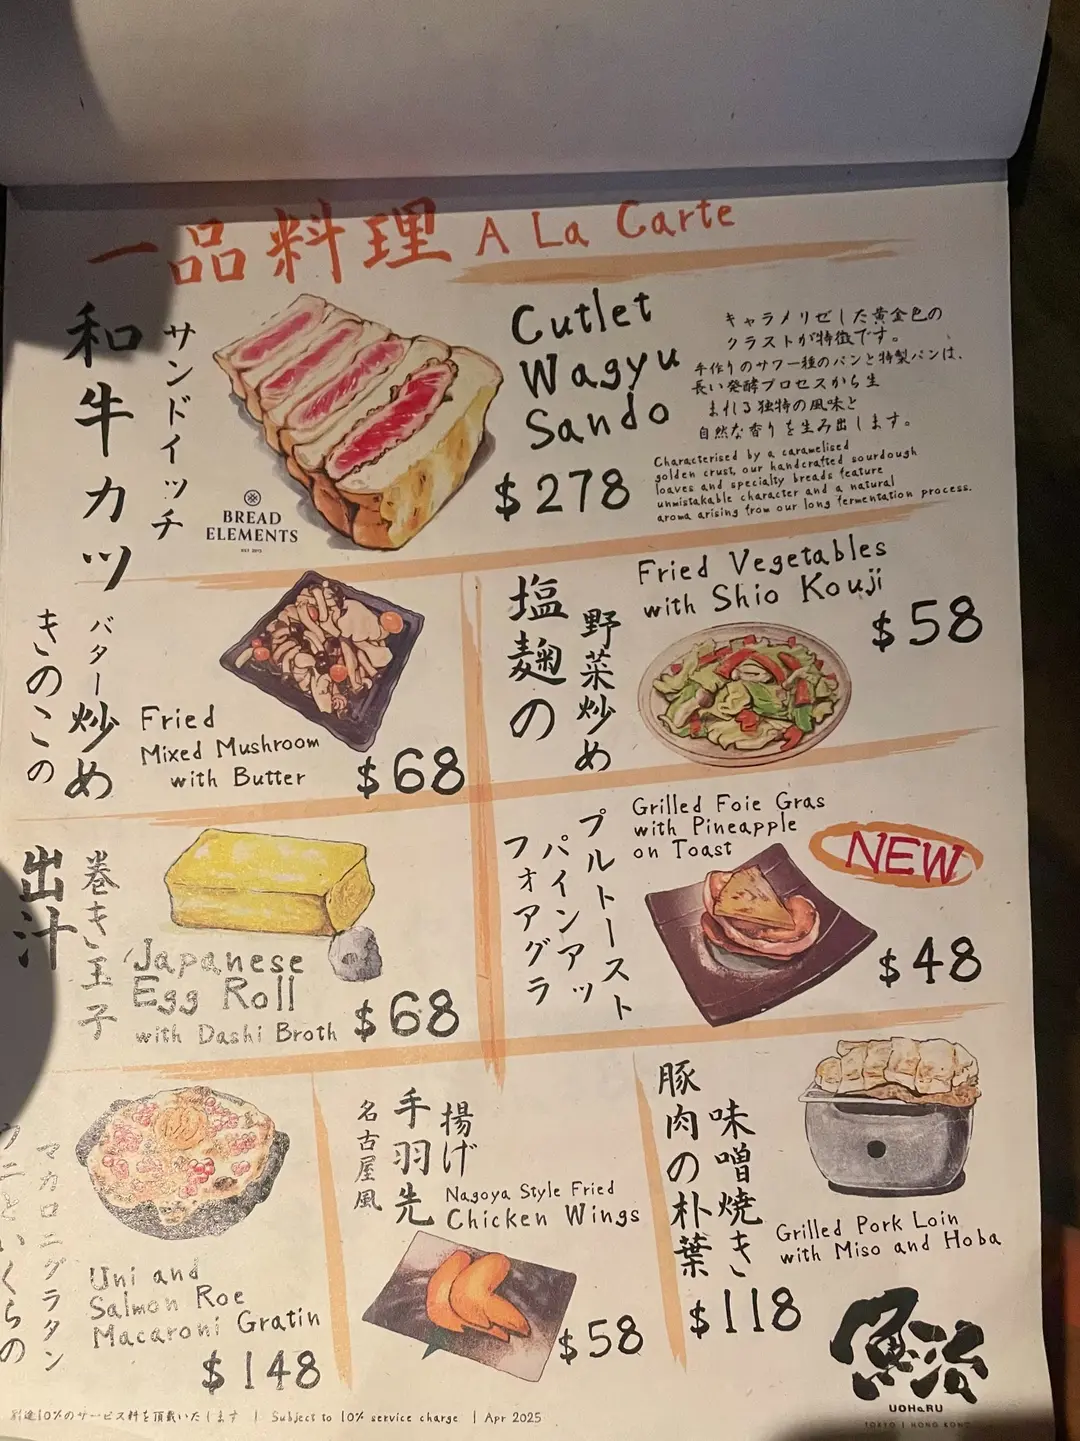 一品料理 A La Carte
和牛カツ
サンドイッチ
BREAD
ELEMENTS
Cutlet
Wagyu
Sando
$278
キャラメリゼした黄金色の
クラストが特徴です。
手作りのサワー種のパンと特製パンは、
長い発酵プロセスから生
まれる独特の風味と
自然な香りを生み出します。
Characterised by a caramelised
golden crust, our handcrafted sourdough
loaves and specialty breads feature
unmistakable character and a natural
aroma arising from our long fermentation process.
きのこの
バター炒め
Fried
Mixed Mushroom
with Butter
$68
塩麹の
野菜炒め
Fried Vegetables
with Shio Kouji
$58
出汁
巻き玉子
Japanese
Egg Roll
with Dashi Broth
$68
フォアグラ
パインアッ
プルトースト
Grilled Foie Gras
with Pineapple
on Toast
NEW
$48
ウニといくらの
マカロニグラタン
Uni and
Salmon Roe
Macaroni Gratin
$148
名古屋風
手羽先
揚げ
Nagoya Style Fried
Chicken Wings
$58
豚肉の朴葉
味噌焼き
Grilled Pork Loin
with Miso and Hoba
$118
魚治
UOHaRU
TOKYO | HONG KONG
別途10%のサービス料を頂戴いたします | Subject to 10% service charge | Apr 2025